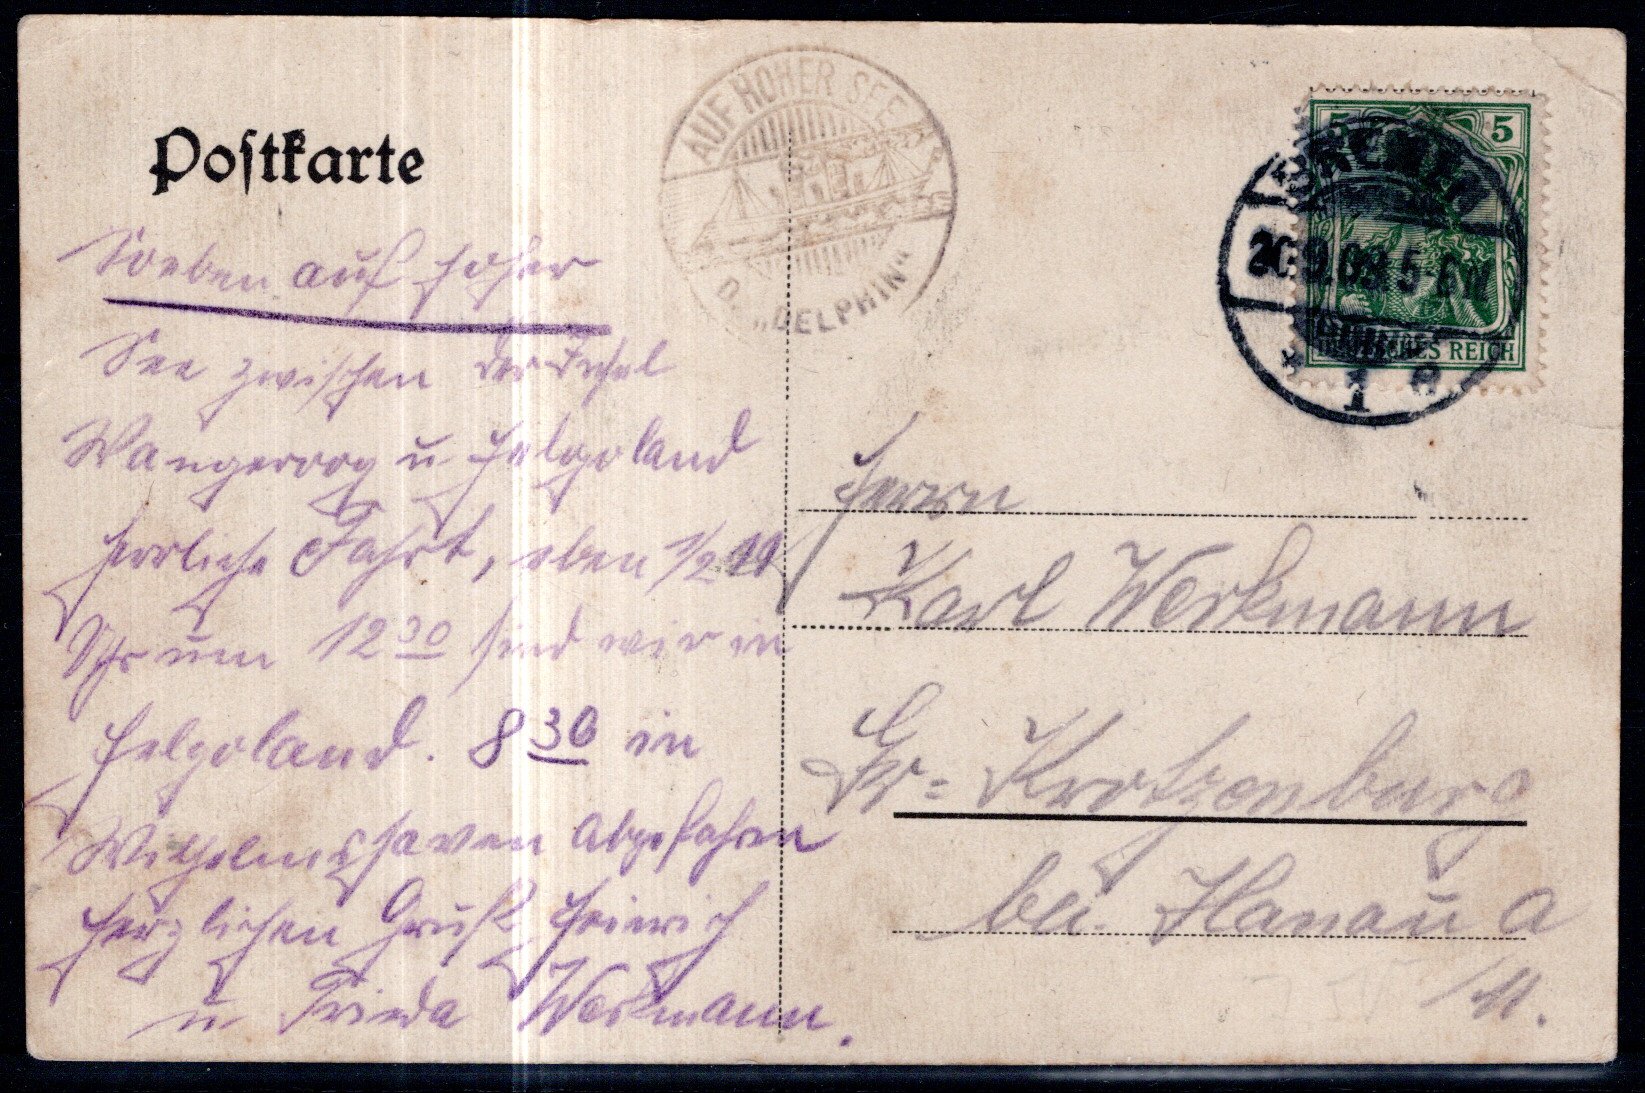 Postkarte
AUF HOHER SEE
D. „DELPHIN“
5 5
DEUTSCHES REICH
BREMEN
26.9.09.5-6N
* 1 e
Soeben auf hoher
See zwischen der Insel
Wangeroog u Helgoland
herrliche Fahrt, eben 1/2 11
Uhr um 12 30 sind wir in
Helgoland. 8 30 in
Wilhelmshaven abgefahren
Herzlichen Gruß Heinrich
u Frieda Werkmann.
Herrn
Karl Werkmann
Gr= Krotzenburg
bei. Hanau a
/M.